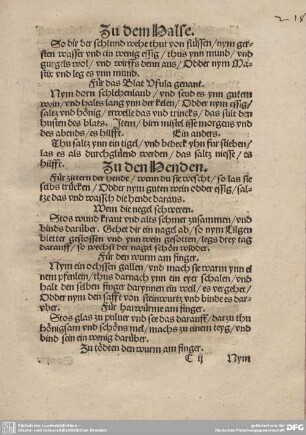 Zu dem Halse.
So dir der schlund wehe thut von flüssen/nym ger-
sten wasser vnd ein wenig essig/thus ynn mund/vnd
gurgels wol/vnd wirffs denn aus/Odder nym Ma-
stix vnd leg es ynn mund.
Für das Blat Vfula genant.
Nym dorn schlehenlaub/vnd seud es ynn gutem
wein/vnd halts lang ynn der kelen/Odder nym essig/
saltz vnd hönig/erwelle das vnd trincks/das sült den
husten des blats. Jtem/birn mistel isse morgens vnd
des abends/es hilfft. Ein anders.
Thu saltz ynn ein tigel/vnd bedeck yhn für stieben/
las es als durchglüend werden/das saltz niesse/es
hilfft.
Zu den Henden.
Für zittern der hende/wenn du sie weschst/so las sie
selbs trücken/Odder nym guten wein odder essig/sal-
tze das vnd wassch die hende daraus.
Wem die negel schweren.
Stos wund kraut vnd alts schmer zusammen/vnd
binds darüber. Gehet dir ein nagel ab/so nym Lilgen
bletter gestossen vnd ynn wein gesotten/legs drey tag
darauff/so wechst der nagel schön widder.
Für den wurm am finger.
Nym ein ochssen gallen/vnd mach sie warm ynn ei
nem pfenlein/thus darnach ynn ein eyer schalen/vnd
halt den selben finger darynnen ein weil/es vergehet/
Odder nym den safft von steinwurtz vnd binde es dar-
uber. Für harwürme am finger.
Stos glas zu puluer vnd see das darauff/darzu thu
hönigsam vnd schöns mel/machs zu einem teyg/vnd
bind sein ein wenig darüber.
Zu tödten den wurm am finger.
C ij Nym